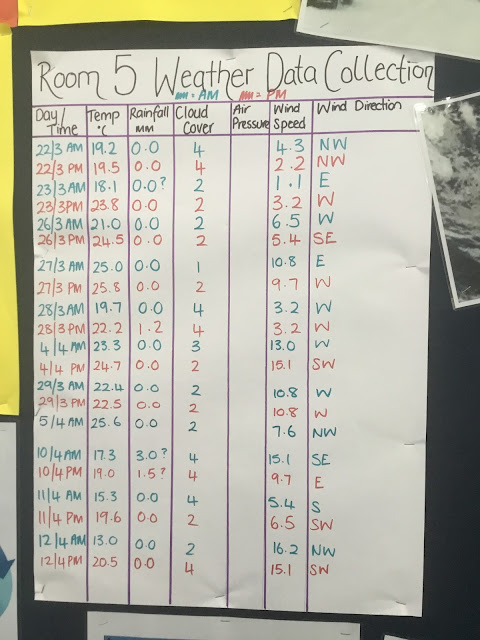 Room 5 Weather Data Collection
= AM = PM
Day/Time Temp °C Rainfall mm Cloud Cover Air Pressure Wind Speed Wind Direction
22/3 AM 19.2 0.0 4 4.3 NW
22/3 PM 19.5 0.0 4 2.2 NW
23/3 AM 18.1 0.0? 2 1.1 E
23/3PM 23.8 0.0 2 3.2 W
26/3 AM 21.0 0.0 2 6.5 W
26/3 PM 24.5 0.0 2 5.4 SE
27/3 AM 25.0 0.0 1 10.8 E
27/3 PM 25.8 0.0 2 9.7 W
28/3 AM 19.7 0.0 4 3.2 W
28/3 PM 22.2 1.2 4 3.2 W
4/4 AM 23.3 0.0 3 13.0 W
4/4 PM 24.7 0.0 2 15.1 SW
29/3 AM 22.4 0.0 2 10.8 W
29/3 PM 22.5 0.0 2 10.8 W
5/4 AM 25.6 0.0 2 7.6 NW
10/4 AM 17.3 3.0? 4 15.1 SE
10/4 PM 19.0 1.5? 4 9.7 E
11/4 AM 15.3 0.0 4 5.4 S
11/4 PM 19.6 0.0 2 6.5 SW
12/4 AM 13.0 0.0 2 16.2 NW
12/4 PM 20.5 0.0 4 15.1 SW